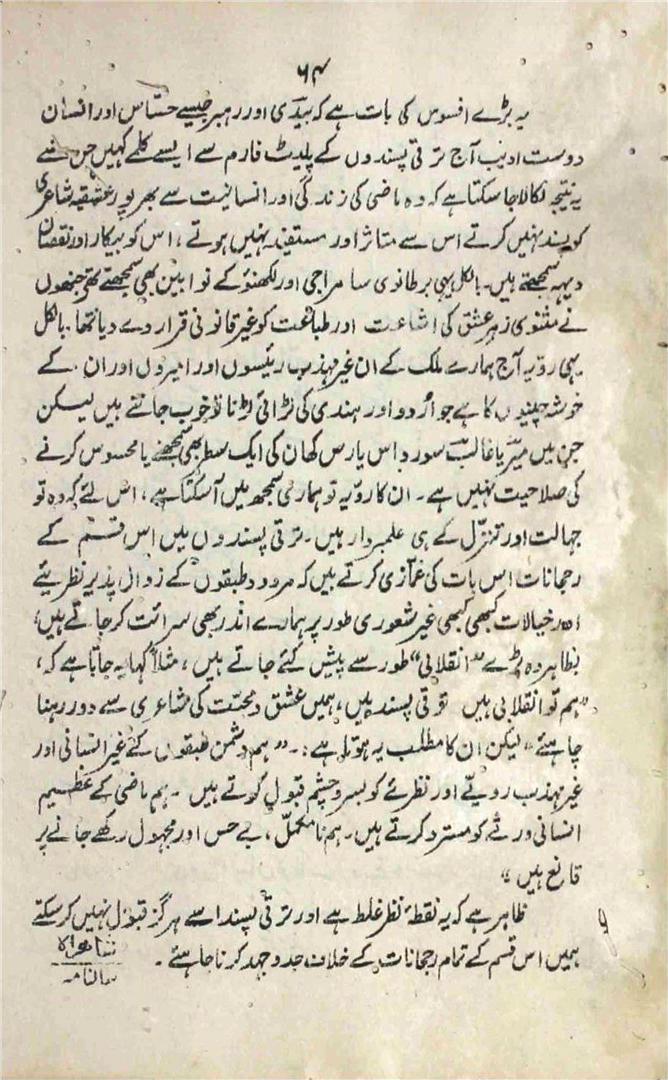 ۶۴
یہ بڑے افسوس کی بات ہے کہ بیدی اور رہبر جیسے حساس اور انسان
دوست ادیب آج ترقی پسندوں کے پلیٹ فارم سے ایسے کلمے کہیں جن سے
یہ نتیجہ نکالا جا سکتا ہے کہ وہ ماضی کی زندگی اور انسانیت سے بھرپور عشقیہ شاعری
کو پسند نہیں کرتے اس سے متاثر اور مستفید نہیں ہوتے، اس کو بیکار اور نقصان
دیہہ سمجھتے ہیں۔ بالکل یہی برطانوی سامراجی اور لکھنؤ کے نوابین بھی سمجھتے تھے جنھوں
نے مثنوی زہر عشق کی اشاعت اور طباعت کو غیر قانونی قرار دے دیا تھا۔ بالکل
یہی رویہ آج ہمارے ملک کے ان غیر مہذب رئیسوں اور امیروں اور ان کے
خوشہ چینوں کا ہے جو اُردو اور ہندی کی لڑائی لڑنا تو خوب جانتے ہیں لیکن
جن میں میرؔ یا غالبؔ سورداس یا رس کھان کی ایک سطر بھی سمجھنے یا محسوس کرنے
کی صلاحیت نہیں ہے۔ ان کا رویہ تو ہماری سمجھ میں آسکتا ہے، اس لئے کہ وہ تو
جہالت اور تنزّل کے ہی علمبردار ہیں۔ ترقی پسندوں میں اس قسم کے
رجحانات اس بات کی غمّازی کرتے ہیں کہ مردود طبقوں کے زوال پذیر نظریئے
اور خیالات کبھی کبھی غیر شعوری طور پر ہمارے اندر بھی سرائت کر جاتے ہیں،
بظاہر وہ بڑے "انقلابی" طور سے پیش کئے جاتے ہیں، مثلاً کہا یہ جاتا ہے کہ،
"ہم تو انقلابی ہیں ترقی پسند ہیں، ہمیں عشق و محبّت کی شاعری سے دور رہنا
چاہئے" لیکن ان کا مطلب یہ ہوتا ہے:۔ "ہم دشمن طبقوں کے غیر انسانی اور
غیر مہذب رویّے اور نظرئے کو بسر و چشم قبول کرتے ہیں۔ ہم ماضی کے عظیم
انسانی ورثے کو مسترد کرتے ہیں۔ ہم نامکمل، بے حس اور مجہول رکھے جانے پر
قانع ہیں"
ظاہر ہے کہ یہ نقطۂ نظر غلط ہے اور ترقی پسند اسے ہرگز قبول نہیں کرسکتے
ہمیں اس قسم کے تمام رجحانات کے خلاف جدوجہد کرنا چاہئے۔
شاہراہ
سالنامہ